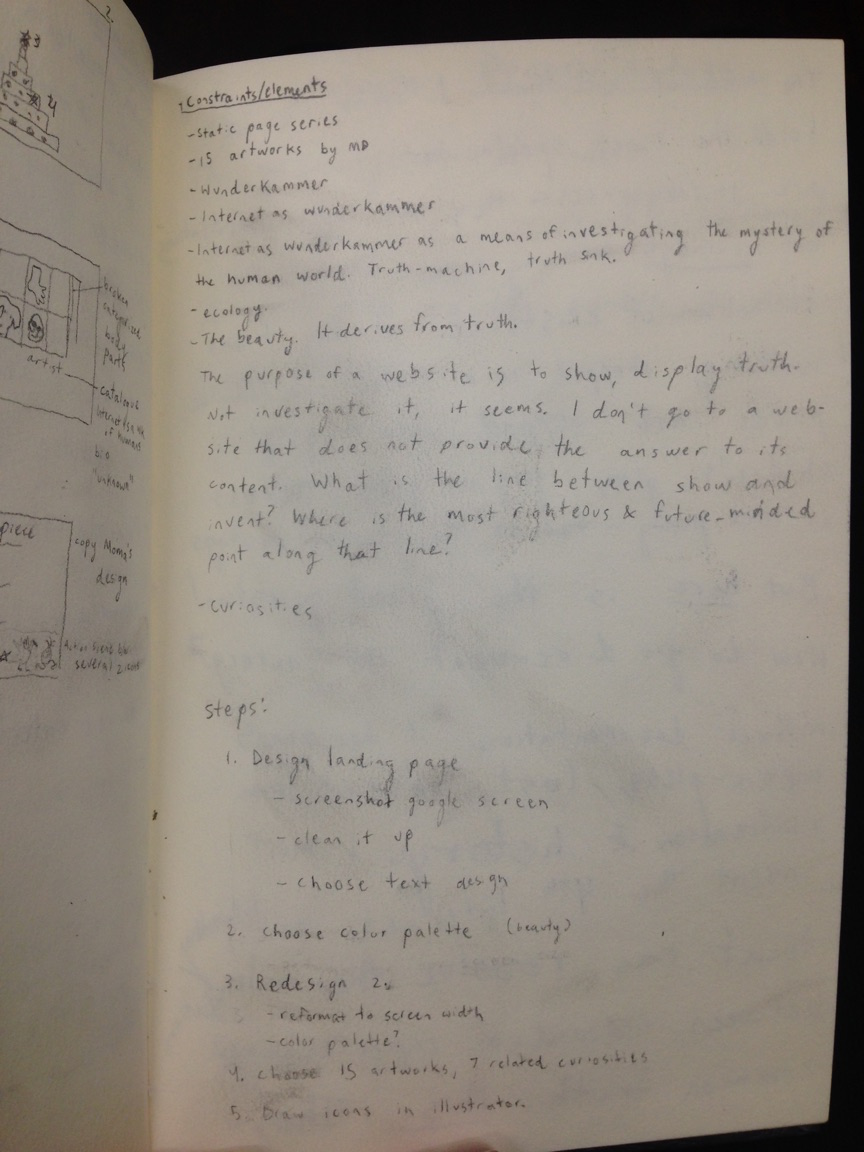 2.
3
4
broken
categorized
body
parts
artist
catalogue
of humans
bio
"unknown"
piece
copy Moma's
design
several
Constraints/elements
-static page series
-15 artworks by MD
-Wunderkammer
-Internet as wunderkammer
-Internet as wunderkammer as a means of investigating the mystery of
the human world. Truth-machine, truth sink.
-ecology.
-The beauty. It derives from truth.
The purpose of a website is to show, display truth.
Not investigate it, it seems. I don't go to a web-
site that does not provide the answer to its
content. What is the line between show and
invent? Where is the most righteous & future-minded
point along that line?
-curiosities
steps:
1. Design landing page
- screenshot google screen
- clean it up
- choose text design
2. choose color palette (beauty)
3. Redesign
- reformat to screen width
- color palette?
4. choose 15 artworks, 7 related curiosities
5. Draw icons in illustrator.